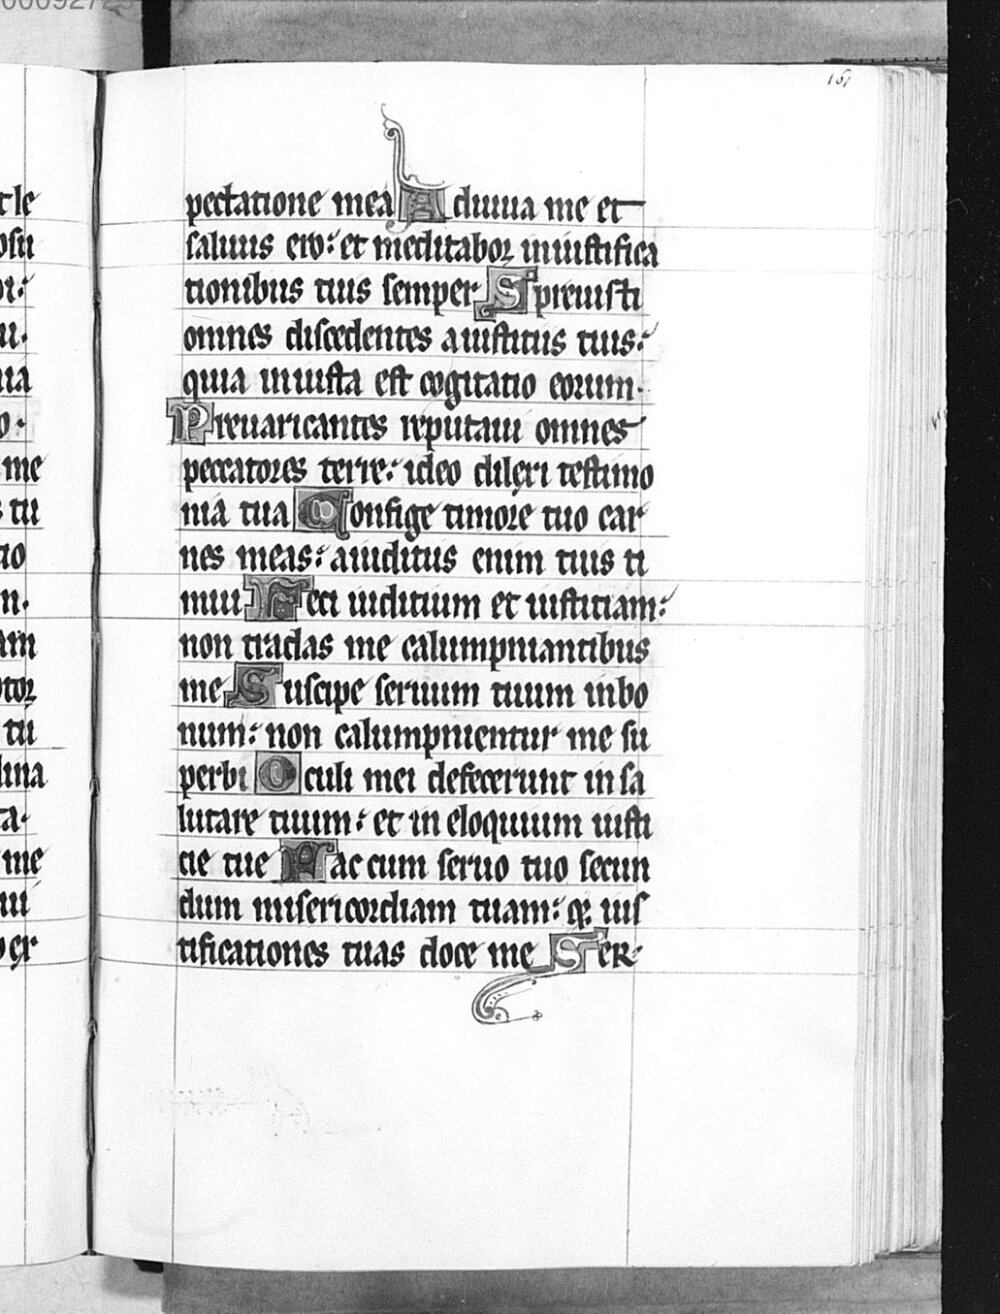 00092723
151
pectatione mea Adiuua me et
saluus ero: et meditabor iniustifica
tionibus tuis semper Spreuisti
omnes discedentes aiustitiis tuis:
quia iniusta est cogitatio eorum.
Preuaricantes reputaui omnes
peccatores terre: ideo dilexi testimo
nia tua Confige timore tuo car
nes meas: aiuditiis enim tuis ti
mui Feci iuditium et iustitiam:
non tradas me calumpniantibus
me Suscipe seruum tuum inbo
num: non calumpnientur me su
perbi Oculi mei defecerunt in sa
lutare tuum: et in eloquium iusti
cie tue Fac cum seruo tuo secun
dum misericordiam tuam: & ius
tificationes tuas doce me Ser